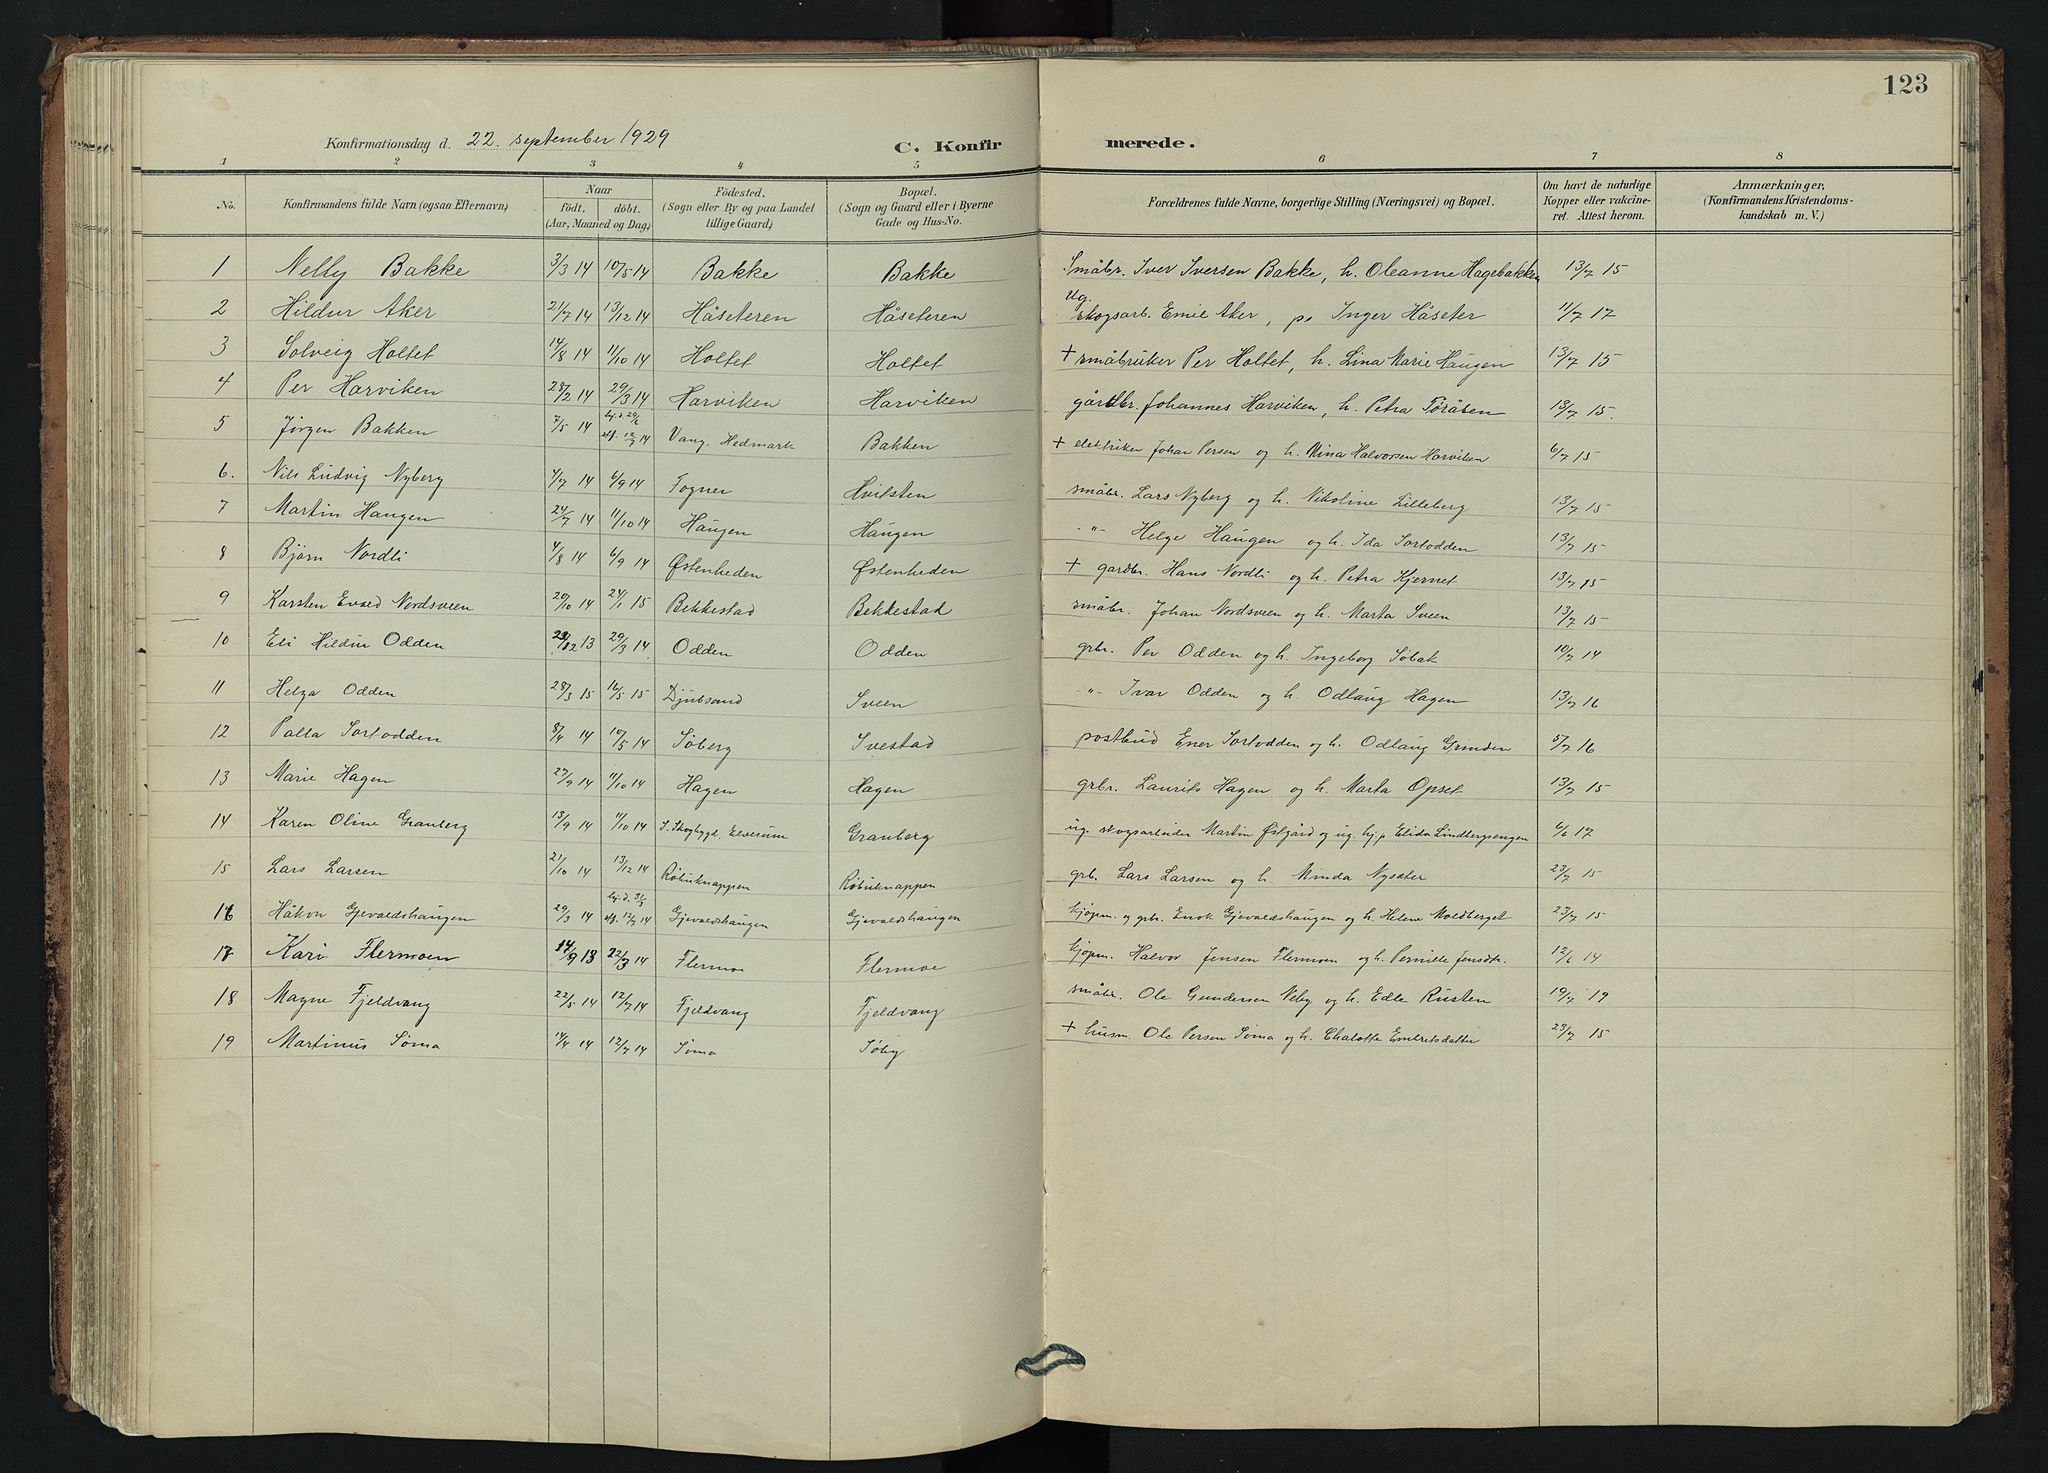 123
Konfirmationsdag d. 22. september 1929
C. Konfirmerede.
1 2 3 4 5 6 7 8
No. Konfirmandens fulde Navn (ogsaa Efternavn) Naar födt. döbt. (Aar, Maaned og Dag) Födested. (Sogn eller By og paa Landet tillige Gaard) Bopæl. (Sogn og Gaard eller i Byerne Gade og Hus-No. Forældrenes fulde Navne, borgerlige Stilling (Næringsvei) og Bopæl. Om havt de naturlige Kopper eller vakcineret. Attest herom. Anmærkninger, (Konfirmandens Kristendomskundskab m. V.)
1 Nelly Bakke 3/3 14 10/5 14 Bakke Bakke Småbr. Iver Iversen Bakke, h. Oleanne Hagebakken 13/7 15
2 Hildur Aker 21/7 14 13/12 14 Håseteren Håseteren Ug. skogsarb. Emil Aker, p. Inger Håseter 11/7 17
3 Solveig Holtet 14/8 14 11/10 14 Holtet Holtet + småbruker Per Holtet, h. Lina Marie Haugen 13/7 15
4 Per Harviken 28/2 14 29/3 14 Harviken Harviken gårdbr. Johannes Harviken, h. Petra Töråsen 13/7 15.
5 Jörgen Bakken 7/5 14 hj.d. 29/6 stf. 12/7 14 Vang. Hedmark Bakken + elektriker Johan Persen og h. Mina Halvorsen Harviken 6/7 15
6. Nils Ludvig Nyberg 4/7 14 6/9 14 Togner Hvilsten småbr. Lars Nyberg og h. Nikoline Lilleberg 13/7 15
7 Martin Haugen 24/7 14 11/10 14 Haugen Haugen -"- Helge Haugen og h. Ida Sortodden 13/7 15
8 Bjørn Nordli 4/8 14 6/9 14 Østenheden Østenheden + gardbr. Hans Nordli og h. Petra Kjernet 13/7 15
9 Karsten Evald Nordsveen 20/10 14 24/1 15 Bekkestad Bekkestad småbr. Johan Nordsveen og h. Marta Sveen 13/7 15
10 Eli Hildur Odden 29/12 13 29/3 14 Odden Odden grbr. Per Odden og h. Ingeborg Søbak 10/7 14
11 Helga Odden 28/3 15 16/5 15 Djubsand Sveen -"- Ivar Odden og h. Odlaug Hagen 13/7 16
12 Palla Sortodden 8/4 14 10/5 14 Søberg Svestad postbud Ener Sortodden og h. Odlaug Grinden 5/7 16
13 Marie Hagen 27/9 14 11/10 14 Hagen Hagen grbr. Laurits Hagen og h. Marta Opset 13/7 15
14 Karen Oline Granberg 13/9 14 11/10 14 S. Skogbygd. Elverum Granberg ug. skogsarbeider Martin Østgård og ug. hj.p Elida Lindbergsengen 6/6 17
15 Lars Larsen 21/10 14 13/12 14 Røbuknappen Røbuknappen grb. Lars Larsen og h. Minda Nysæter 23/7 15
16 Håkon Gjevaldshaugen 29/3 14 hj.d. 31/3 stf. 12/7 14 Gjevaldshaugen Gjevaldshaugen kjøpm. og grbr. Enok Gjevaldshaugen og h. Helene Moldberget 23/7 15
17 Kari Flermoen 14/9 13 22/3 14 Flermoe Flermoe kjøpm. Halvor Jensen Flermoen og h. Pernille Jensdtr. 12/6 14
18 Magne Fjeldvang 22/5 14 12/7 14 Fjeldvang Fjeldvang småbr. Ole Gundersen Neby og h. Edle Rusten 19/7 19
19 Martinus Søma 14/4 14 12/7 14 Søma Søby + husm. Ole Persen Søma og h. Chalotte Embretsdatter 23/7 15